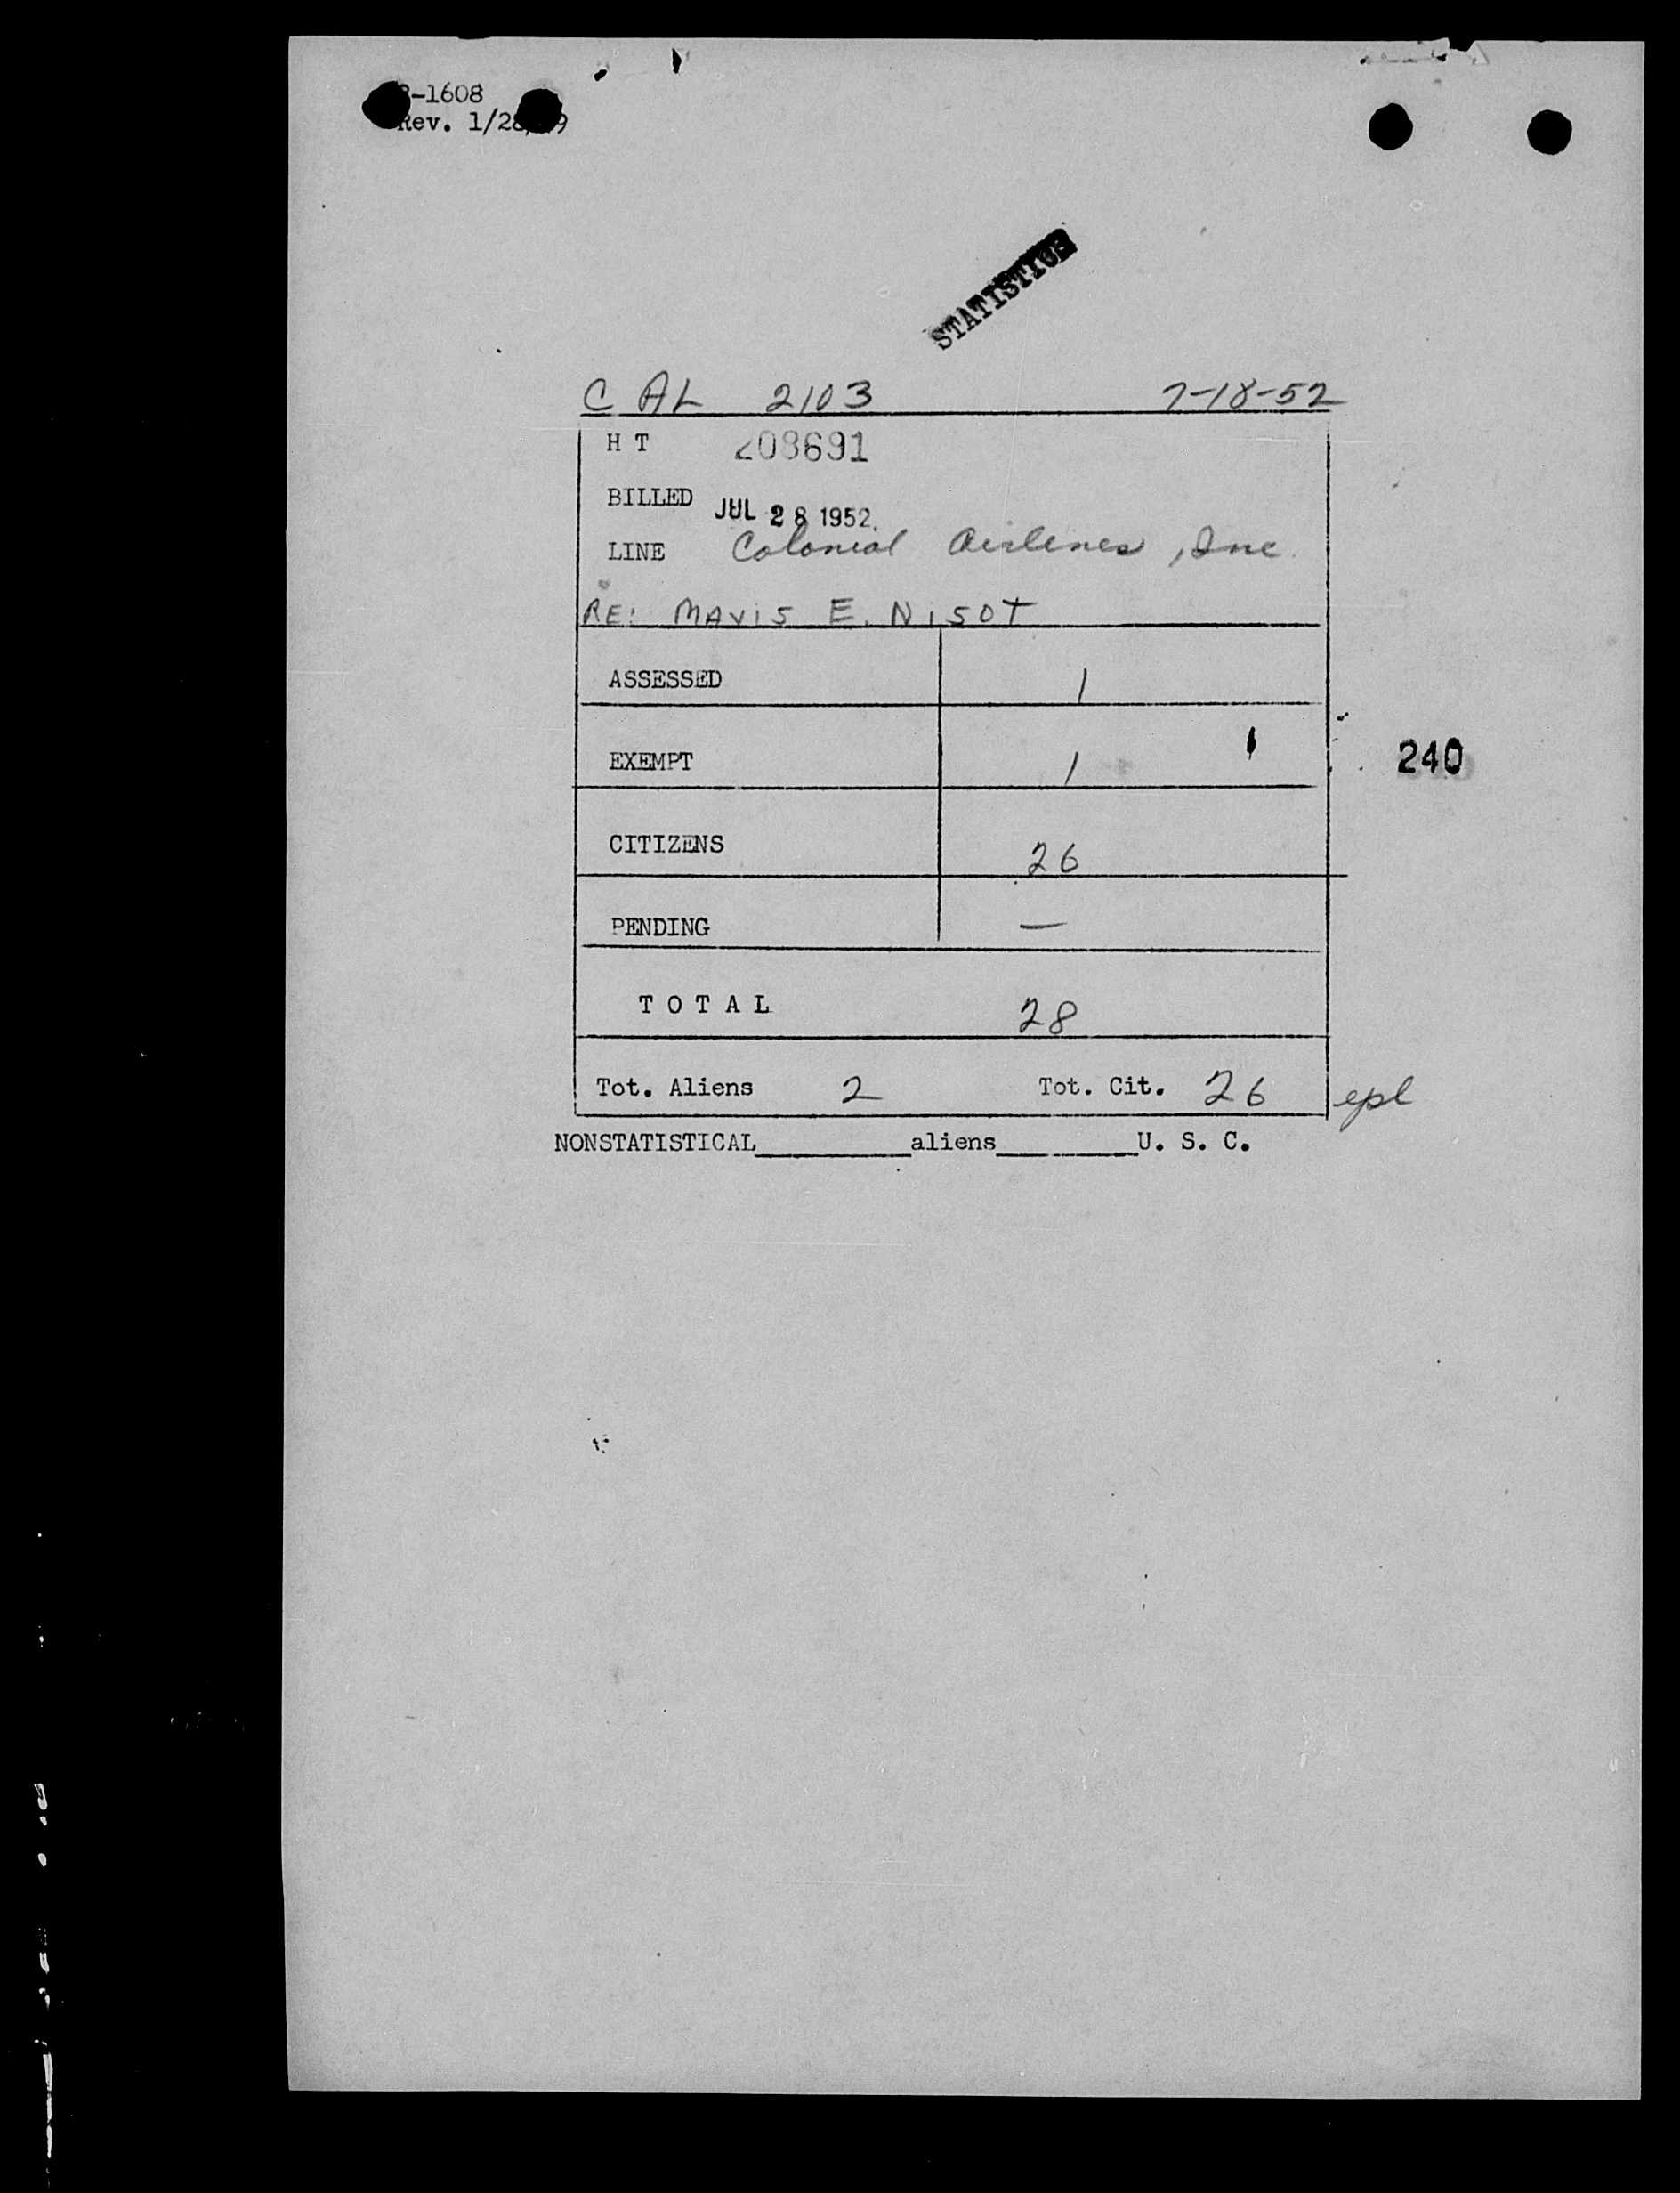 -1608
Rev. 1/28/ 9
STATISTICS
C AL 2103 7-18-52
H T 208691
BILLED JUL 28 1952
LINE Colonial Airlines, Inc.
RE: MAVIS E. NISOT
ASSESSED 1
EXEMPT 1
240
CITIZENS 26
PENDING —
T O T A L 28
Tot. Aliens 2 Tot. Cit. 26 epl
NONSTATISTICAL________aliens________U. S. C.